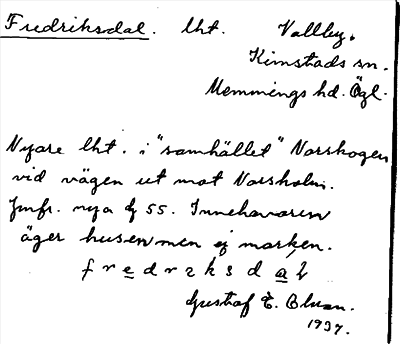 Fredriksdal. lht. Vallby.
Kimstads sn.
Memmings hd. Ögl.
Nyare lht. i "samhället" Norskogen
vid vägen ut mot Norsholm.
Jmfr. nya 55. Innehavaren
äger husen men ej marken.
fredrəksdaʹl
Gustaf E.
1937.